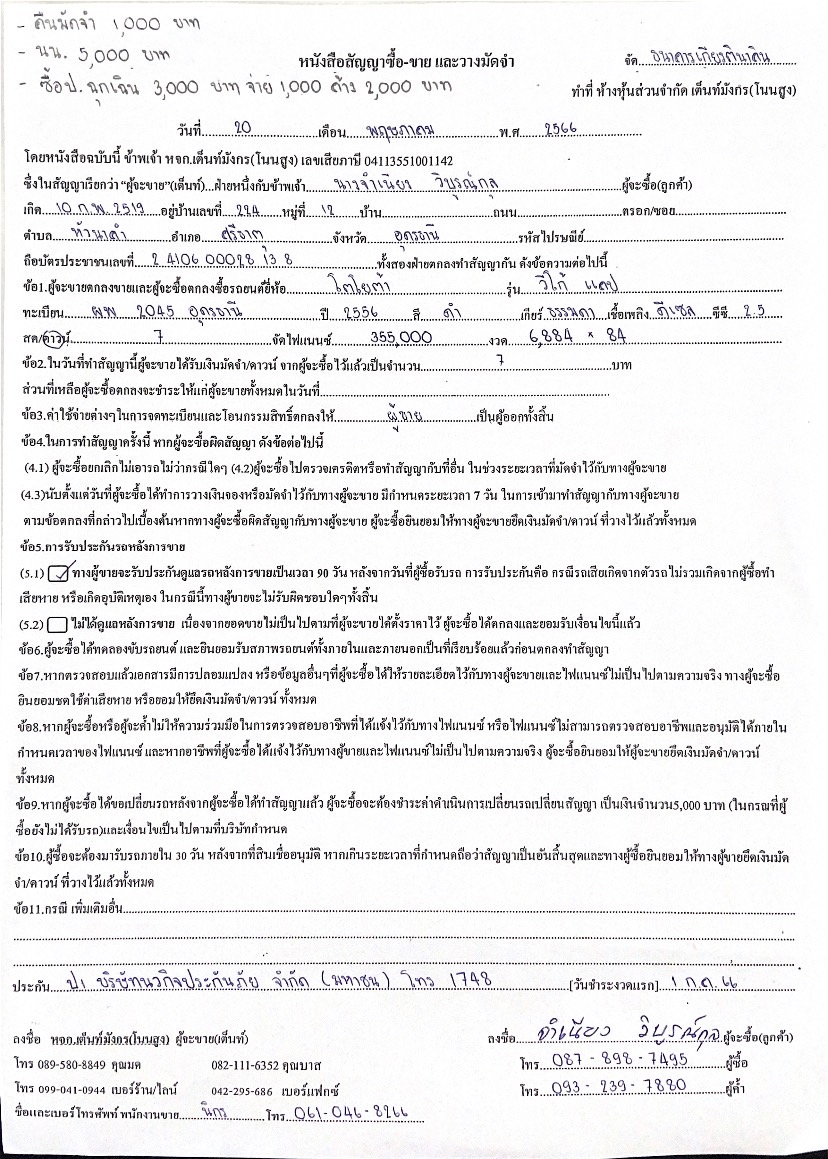 - คืนมัดจำ 1,000 บาท
- นน. 5,000 บาท
- ซื้อป.ฉุกเฉิน 3,000 บาท จ่าย 1,000 ค้าง 2,000 บาท
หนังสือสัญญาซื้อ-ขาย และวางมัดจำ
จัด ธนาคารเกียรตินาคิน
ทำที่ ห้างหุ้นส่วนจำกัด เต็นท์มังกร(โนนสูง)
วันที่ 20 เดือน พฤษภาคม พ.ศ 2566
โดยหนังสือฉบับนี้ ข้าพเจ้า หจก.เต็นท์มังกร(โนนสูง) เลขเสียภาษี 04113551001142
ซึ่งในสัญญาเรียกว่า "ผู้จะขาย"(เต็นท์)...ฝ่ายหนึ่งกับข้าพเจ้า นางจำเนียง วิบูรณ์กุล ผู้จะซื้อ(ลูกค้า)
เกิด 10 ก.พ. 2519 อยู่บ้านเลขที่ 224 หมู่ที่ 12 บ้าน ถนน ตรอก/ซอย
ตำบล อำเภอ ศรีธาตุ จังหวัด อุดรธานี รหัสไปรษณีย์
ถือบัตรประชาชนเลขที่ 2 4106 00028 13 8 ทั้งสองฝ่ายตกลงทำสัญญากัน ดังข้อความต่อไปนี้
ข้อ1.ผู้จะขายตกลงขายและผู้จะซื้อตกลงซื้อรถยนต์ยี่ห้อ โตโยต้า รุ่น วีโก้ แคป
ทะเบียน ผพ 2045 อุดรธานี ปี 2556 สี ดำ เกียร์ ธรรมดา เชื้อเพลิง ดีเซล ซีซี 2.5
สด/ดาวน์ 7 จัดไฟแนนซ์ 355,000 งวด 6,884 × 84
ข้อ2.ในวันที่ทำสัญญานี้ผู้จะขายได้รับเงินมัดจำ/ดาวน์ จากผู้จะซื้อไว้แล้วเป็นจำนวน 7 บาท
ส่วนที่เหลือผู้จะซื้อตกลงจะชำระให้แก่ผู้จะขายทั้งหมดในวันที่
ข้อ3.ค่าใช้จ่ายต่างๆในการจดทะเบียนและโอนกรรมสิทธิ์ตกลงให้ ผู้ขาย เป็นผู้ออกทั้งสิ้น
ข้อ4.ในการทำสัญญาครั้งนี้ หากผู้จะซื้อผิดสัญญา ดังข้อต่อไปนี้
(4.1) ผู้จะซื้อยกเลิกไม่เอารถไม่ว่ากรณีใดๆ (4.2)ผู้จะซื้อไปตรวจเครดิตหรือทำสัญญากับที่อื่น ในช่วงระยะเวลาที่มัดจำไว้กับทางผู้จะขาย
(4.3)นับตั้งแต่วันที่ผู้จะซื้อได้ทำการวางเงินจองหรือมัดจำไว้กับทางผู้จะขาย มีกำหนดระยะเวลา 7 วัน ในการเข้ามาทำสัญญากับทางผู้จะขาย
ตามข้อตกลงที่กล่าวไปเบื้องต้นหากทางผู้จะซื้อผิดสัญญากับทางผู้จะขาย ผู้จะซื้อยินยอมให้ทางผู้จะขายยึดเงินมัดจำ/ดาวน์ ที่วางไว้แล้วทั้งหมด
ข้อ5.การรับประกันรถหลังการขาย
(5.1) ทางผู้ขายจะรับประกันดูแลรถหลังการขายเป็นเวลา 90 วัน หลังจากวันที่ผู้ซื้อรับรถ การรับประกันคือ กรณีรถเสียเกิดจากตัวรถ ไม่รวมเกิดจากผู้ซื้อทำ
เสียหาย หรือเกิดอุบัติเหตุเอง ในกรณีนี้ทางผู้ขายจะไม่รับผิดชอบใดๆทั้งสิ้น
(5.2) ไม่ได้ดูแลหลังการขาย เนื่องจากยอดขายไม่เป็นไปตามที่ผู้จะขายได้ตั้งราคาไว้ ผู้จะซื้อได้ตกลงและยอมรับเงื่อนไขนี้แล้ว
ข้อ6.ผู้จะซื้อได้ทดลองขับรถยนต์ และยินยอมรับสภาพรถยนต์ทั้งภายในและภายนอกเป็นที่เรียบร้อยแล้วก่อนตกลงทำสัญญา
ข้อ7.หากตรวจสอบแล้วเอกสารมีการปลอมแปลง หรือข้อมูลอื่นๆที่ผู้จะซื้อได้ให้รายละเอียดไว้กับทางผู้จะขายและไฟแนนซ์ไม่เป็นไปตามความจริง ทางผู้จะซื้อ
ยินยอมชดใช้ค่าเสียหาย หรือยอมให้ยึดเงินมัดจำ/ดาวน์ ทั้งหมด
ข้อ8.หากผู้จะซื้อหรือผู้จะค้ำไม่ให้ความร่วมมือในการตรวจสอบอาชีพที่ได้แจ้งไว้กับทางไฟแนนซ์ หรือไฟแนนซ์ไม่สามารถตรวจสอบอาชีพและอนุมัติได้ภายใน
กำหนดเวลาของไฟแนนซ์ และหากอาชีพที่ผู้จะซื้อได้แจ้งไว้กับทางผู้ขายและไฟแนนซ์ไม่เป็นไปตามความจริง ผู้จะซื้อยินยอมให้ผู้จะขายยึดเงินมัดจำ/ดาวน์
ทั้งหมด
ข้อ9.หากผู้จะซื้อได้ขอเปลี่ยนรถหลังจากผู้จะซื้อได้ทำสัญญาแล้ว ผู้จะซื้อจะต้องชำระค่าดำเนินการเปลี่ยนรถเปลี่ยนสัญญา เป็นเงินจำนวน5,000 บาท (ในกรณที่ผู้
ซื้อยังไม่ได้รับรถ)และเงื่อนไขเป็นไปตามที่บริษัทกำหนด
ข้อ10.ผู้ซื้อจะต้องมารับรถภายใน 30 วัน หลังจากที่สินเชื่ออนุมัติ หากเกินระยะเวลาที่กำหนดถือว่าสัญญาเป็นอันสิ้นสุดและทางผู้ซื้อยินยอมให้ทางผู้ขายยึดเงินมัด
จำ/ดาวน์ ที่วางไว้แล้วทั้งหมด
ข้อ11.กรณี เพิ่มเติมอื่น
ประกัน ป1 บริษัทนวกิจประกันภัย จำกัด (มหาชน) โทร 1748 [วันชำระงวดแรก] 1 ก.ค. 66
ลงชื่อ หจก.เต็นท์มังกร(โนนสูง) ผู้จะขาย(เต็นท์)
ลงชื่อ จำเนียง วิบูรณ์กุล ผู้จะซื้อ(ลูกค้า)
โทร 089-580-8849 คุณมด 082-111-6352 คุณบาส
โทร 087-898-7495 ผู้ซื้อ
โทร 099-041-0944 เบอร์ร้าน/ไลน์ 042-295-686 เบอร์แฟกซ์
โทร 093-239-7880 ผู้ค้ำ
ชื่อและเบอร์โทรศัพท์ พนักงานขาย นิกร โทร 061-046-8266